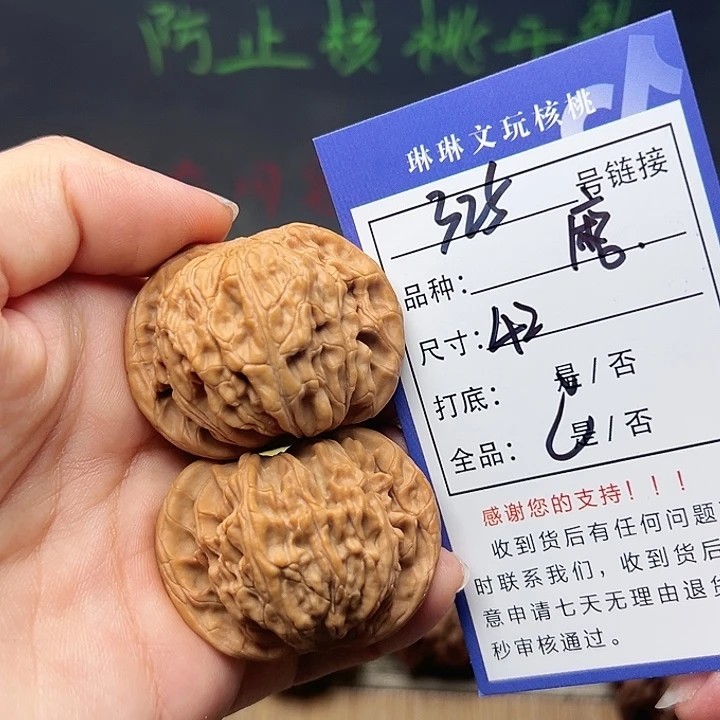 防止核桃干裂
琳琳文玩核桃
325 号链接
品种：磨
尺寸：42
打底：是/否
全品：是/否
感谢您的支持！！！
收到货后有任何问题
时联系我们，收到货后
意申请七天无理由退货
秒审核通过。